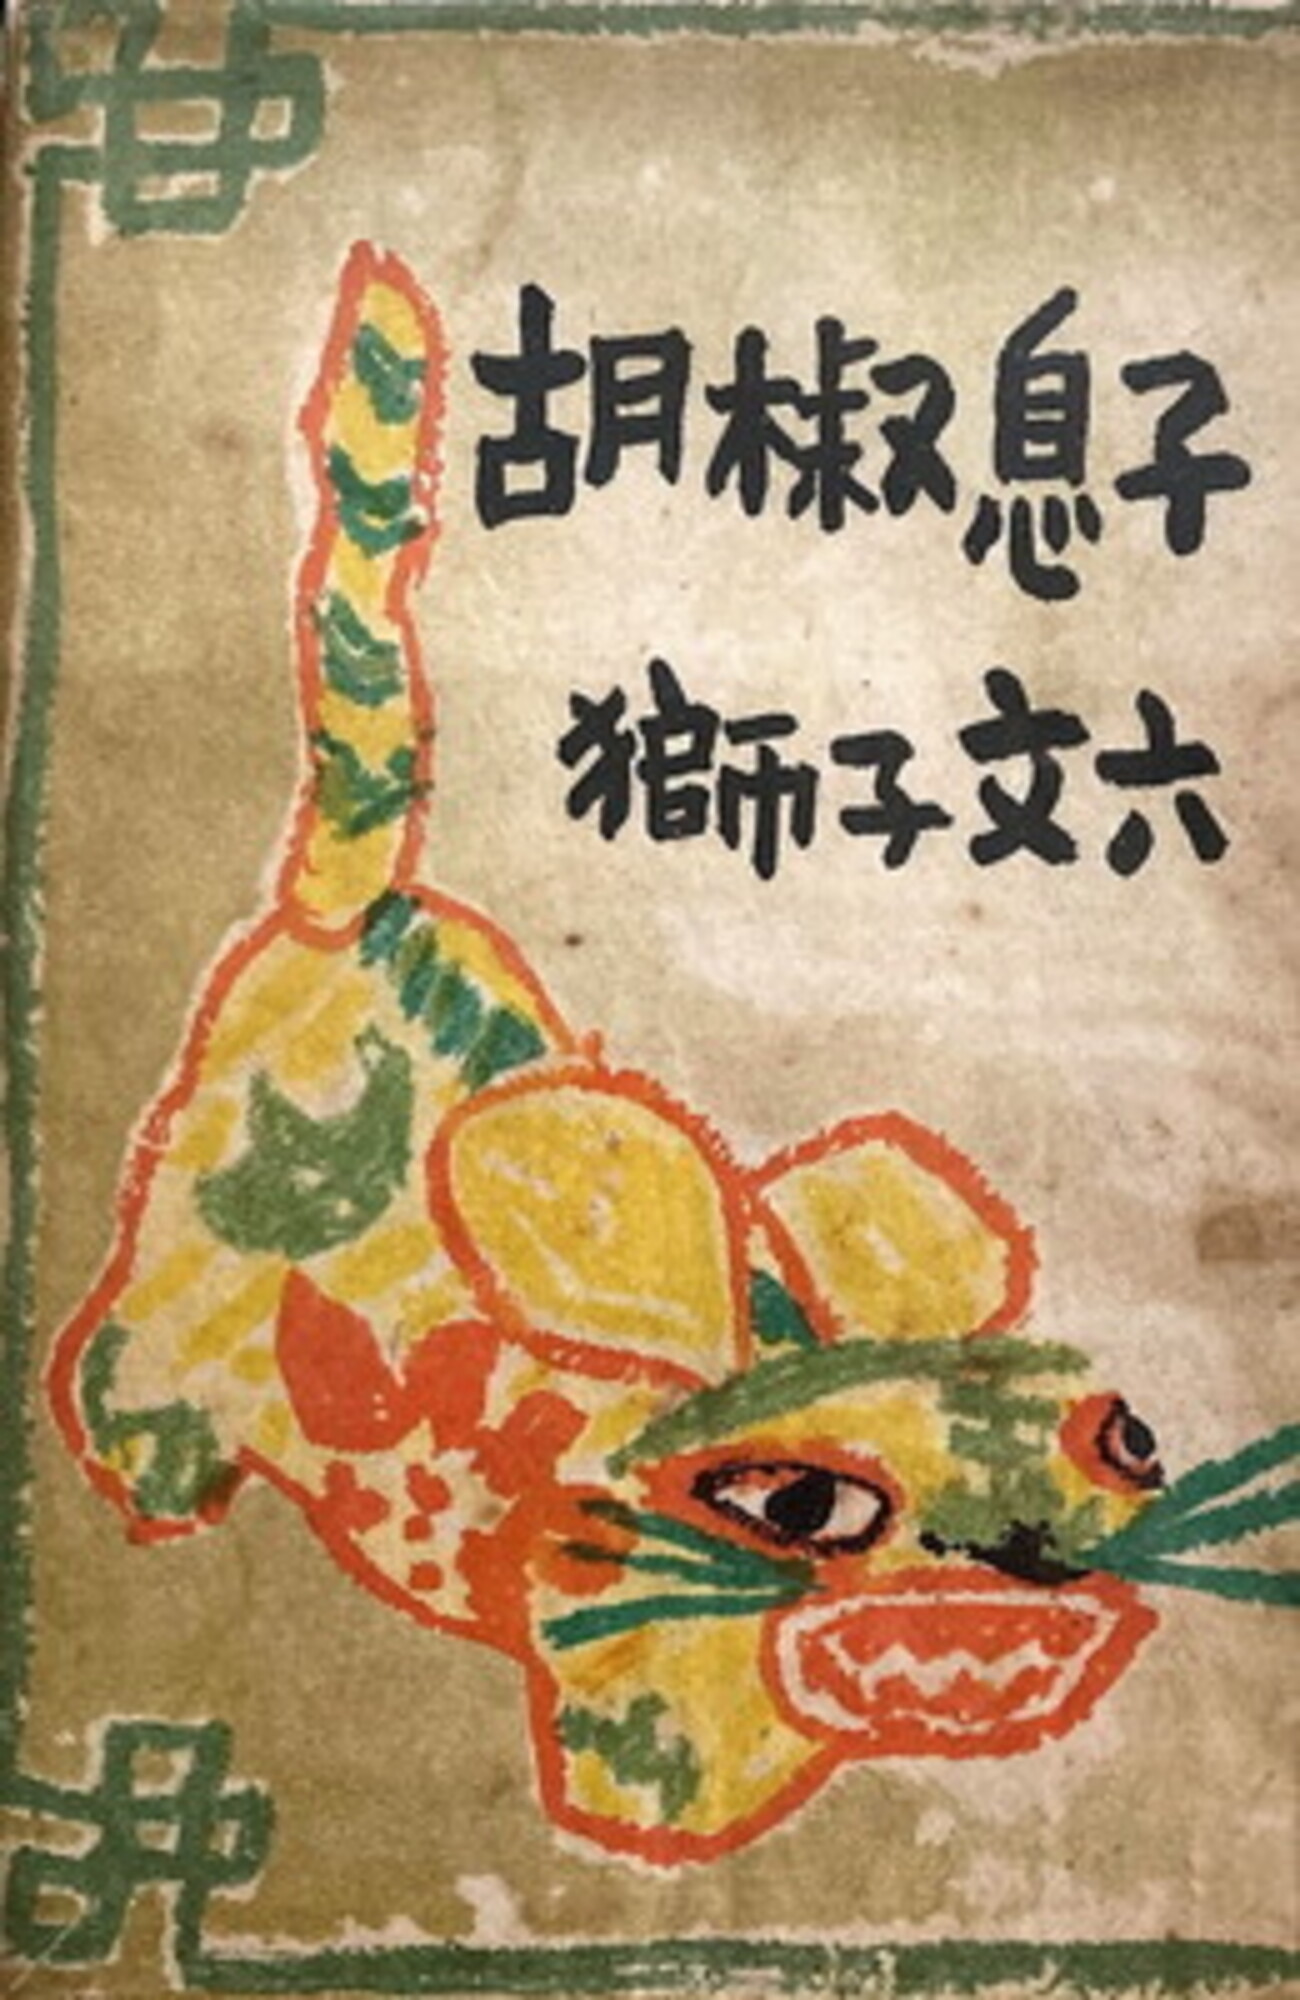 胡椒息子
獅子文六